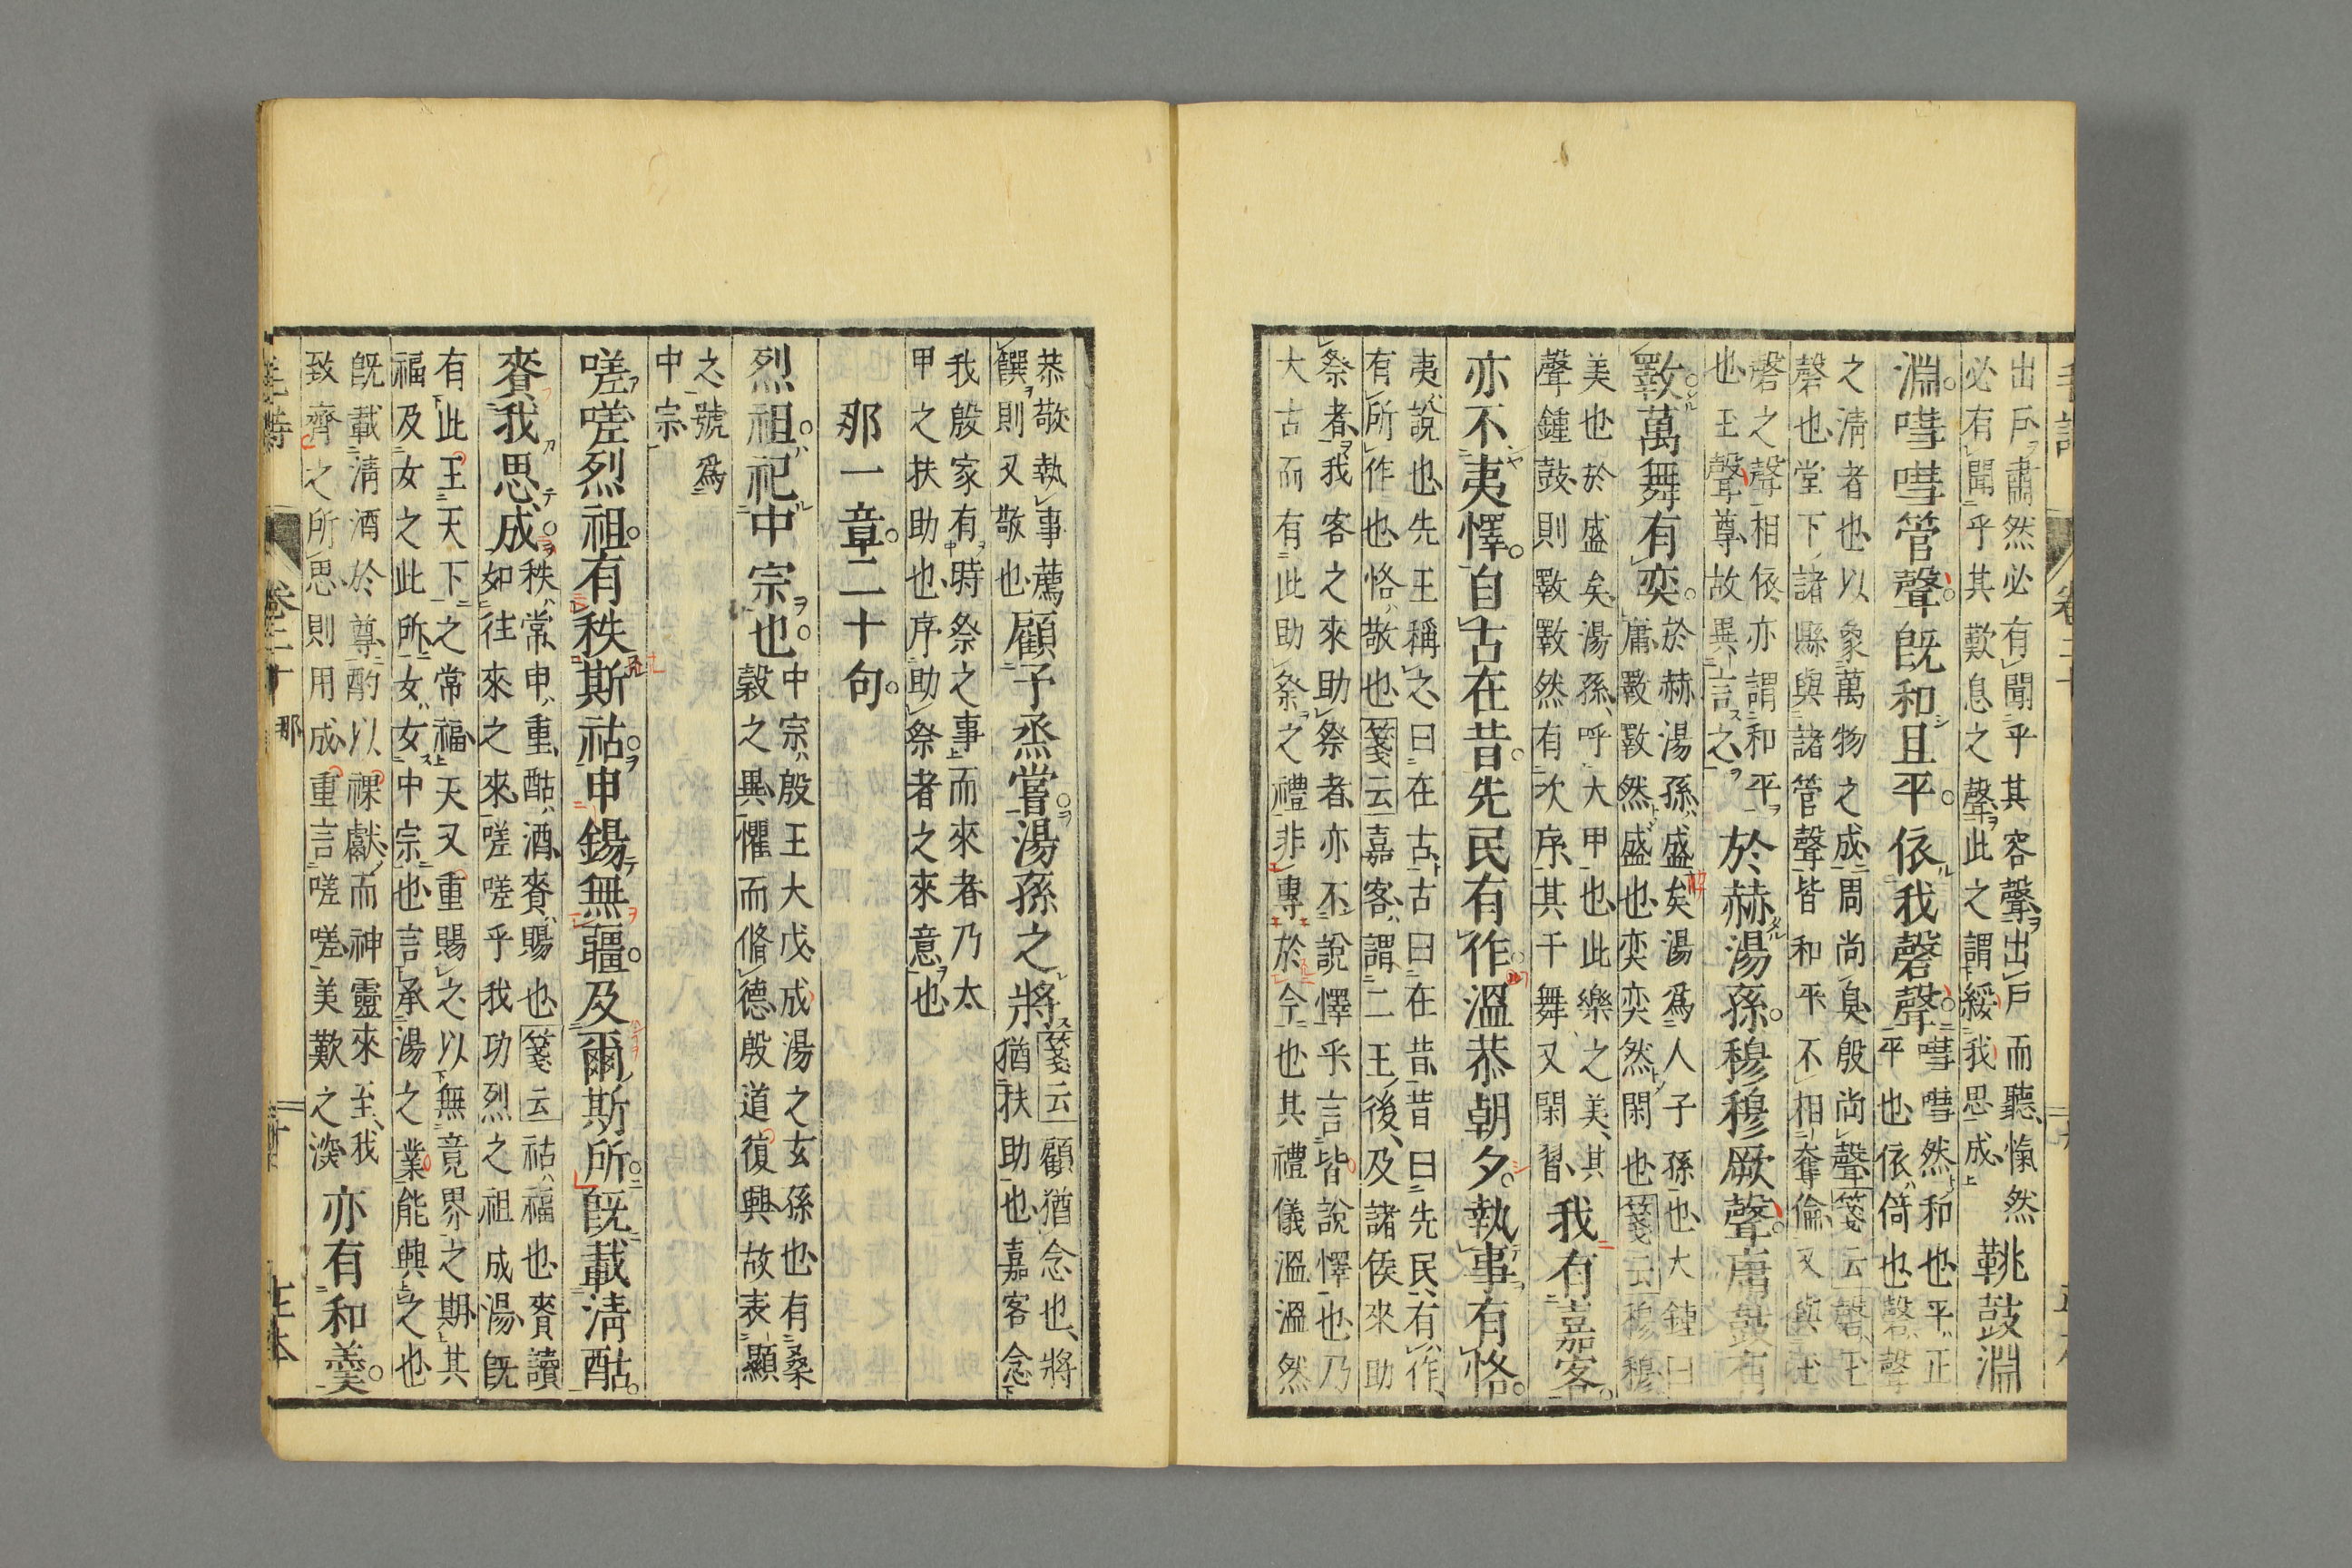 出戶肅然必有聞乎其容聲出戶而聽愾然
必有聞乎其歎息之聲此之謂綏我思成
鞉鼓淵
淵嘒嘒管聲既和且平依我磬聲
嘒嘒然和也平正
平也依倚也磬聲
之淸者也以象萬物之成周尚臭殷尚聲箋云磬玉
磬也堂下諸縣與諸管聲皆和平不相奪倫又與玉
磬之聲相依亦謂和平
也玉聲尊故異言之
於赫湯孫穆穆厥聲庸鼓有
斁萬舞有奕
於赫湯孫盛矣湯爲人子孫也大鍾曰
庸斁斁然盛也奕奕然閑也箋云穆穆
美也於盛矣湯孫呼大甲也此樂之美其
聲鍾鼓則斁斁然有次序其干舞又閑習
我有嘉客
亦不夷懌自古在昔先民有作溫恭朝夕執事有恪
夷說也先王稱之曰在古古曰在昔昔曰先民有作
有所作也恪敬也箋云嘉客謂二王後及諸侯來助
祭者我客之來助祭者亦不說懌乎言皆說懌也乃
大古而有此助祭之禮非專於今也其禮儀溫溫然
恭敬執事薦
饌則又敬也
顧予烝嘗湯孫之將
箋云顧猶念也將
猶扶助也嘉客念
我殷家有時祭之事而來者乃太
甲之扶助也序助祭者之來意也
那一章二十句
烈祖祀中宗也
中宗殷王大戊成湯之玄孫也有桑
穀之異懼而脩德殷道復興故表顯
之號爲
中宗
嗟嗟烈祖有秩斯祜申錫無疆及爾斯所既載淸酤
賚我思成
秩常申重酤酒賚賜也箋云祜福也賚讀
如往來之來嗟嗟乎我功烈之祖成湯既
有此王天下之常福天又重賜之以無竟界之期其
福及女之此所女女中宗也言承湯之業能興之也
既載淸酒於尊酌以祼獻而神靈來至我
致齊之所思則用成重言嗟嗟美歎之深
亦有和羹
毛詩 卷二十 那